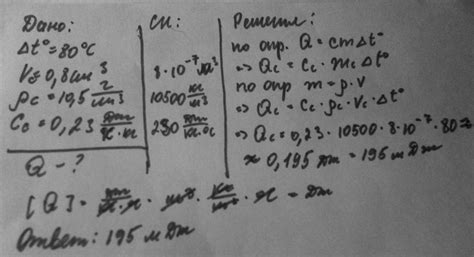 Дано:
Δt°=80°C
Vc=0,8см³
ρc=10,5 г/см³
Cc=0,23 Дж/г·к
Q – ?
СИ:
8·10⁻⁷м³
10500 кг/м³
230 Дж/кг·°C
Решение:
по опр. Q=cmΔt°
⇒ Qc=Cc·mcΔt°
по опр m=ρ·V
⇒ Qc=Cc·ρc·Vc·Δt°
⇒ Qc=0,23·10500·8·10⁻⁷·80≈
≈ 0,195 Дж = 195 мДж
[Q] = = Дж
Ответ: 195 мДж